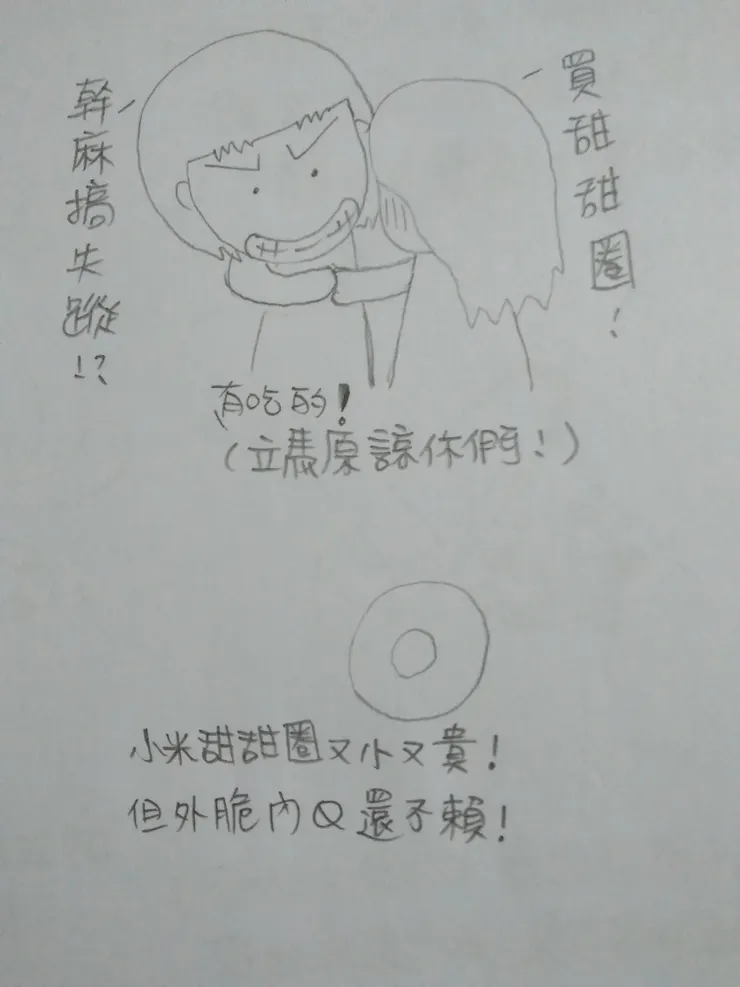 買甜甜圈!
幹麻搞失蹤!?
有吃的!
(立馬原諒你們!)
小米甜甜圈又小又貴!
但外脆內Q還不賴!